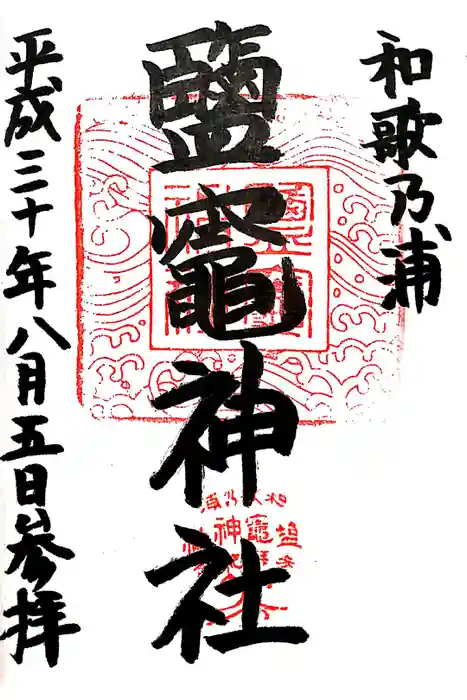 和歌乃浦
鹽竈神社
平成三十年八月五日参拝